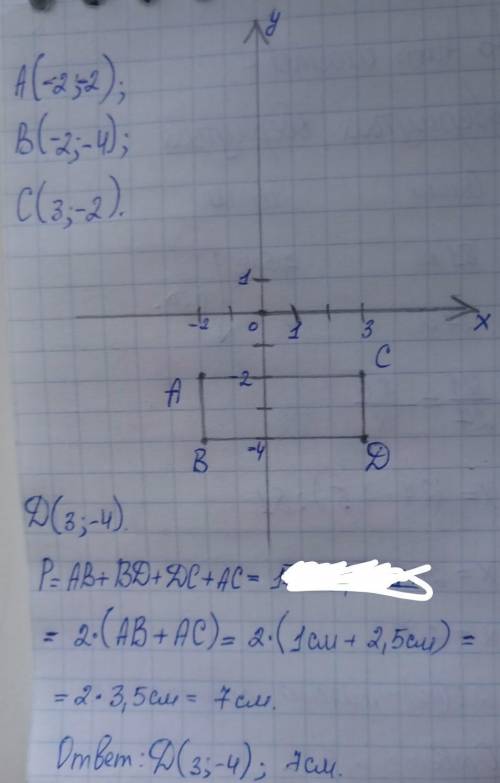 y
A(-2;-2);
B(-2;-4);
C(3;-2).
1
-2 0 1 3 x
C
A -2
B -4 D
D(3;-4).
P=AB+BD+DC+AC=
= 2·(AB+AC)= 2·(1см+2,5см)=
= 2·3,5см= 7см.
Ответ: D(3;-4); 7см.